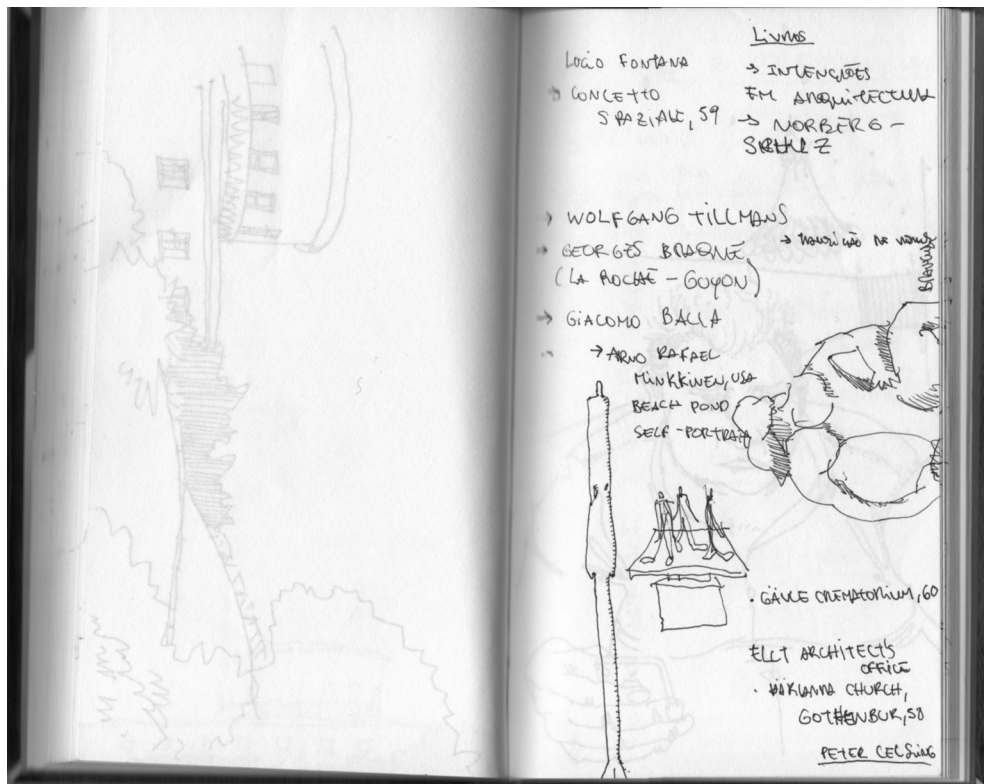 LUCIO FONTANA
→ CONCETTO
SPAZIALE, 59
Livros
→ INTENÇÕES
EM ARQUITECTURA
→ NORBERG -
SCHULZ
→ WOLFGANG TILLMANS
→ GEORGES BRAQUE,
(LA ROCHE - GUYON)
→ GIACOMO BALLA
→ ARNO RAFAEL
MINKKINEN, USA
BEACH POND
SELF-PORTRAIT
· GÄVLE CREMATORIUM, 60
ELLT ARCHITECT'S
OFFICE
· HÄRLANDA CHURCH,
GOTHENBUR, 58
PETER CELSING